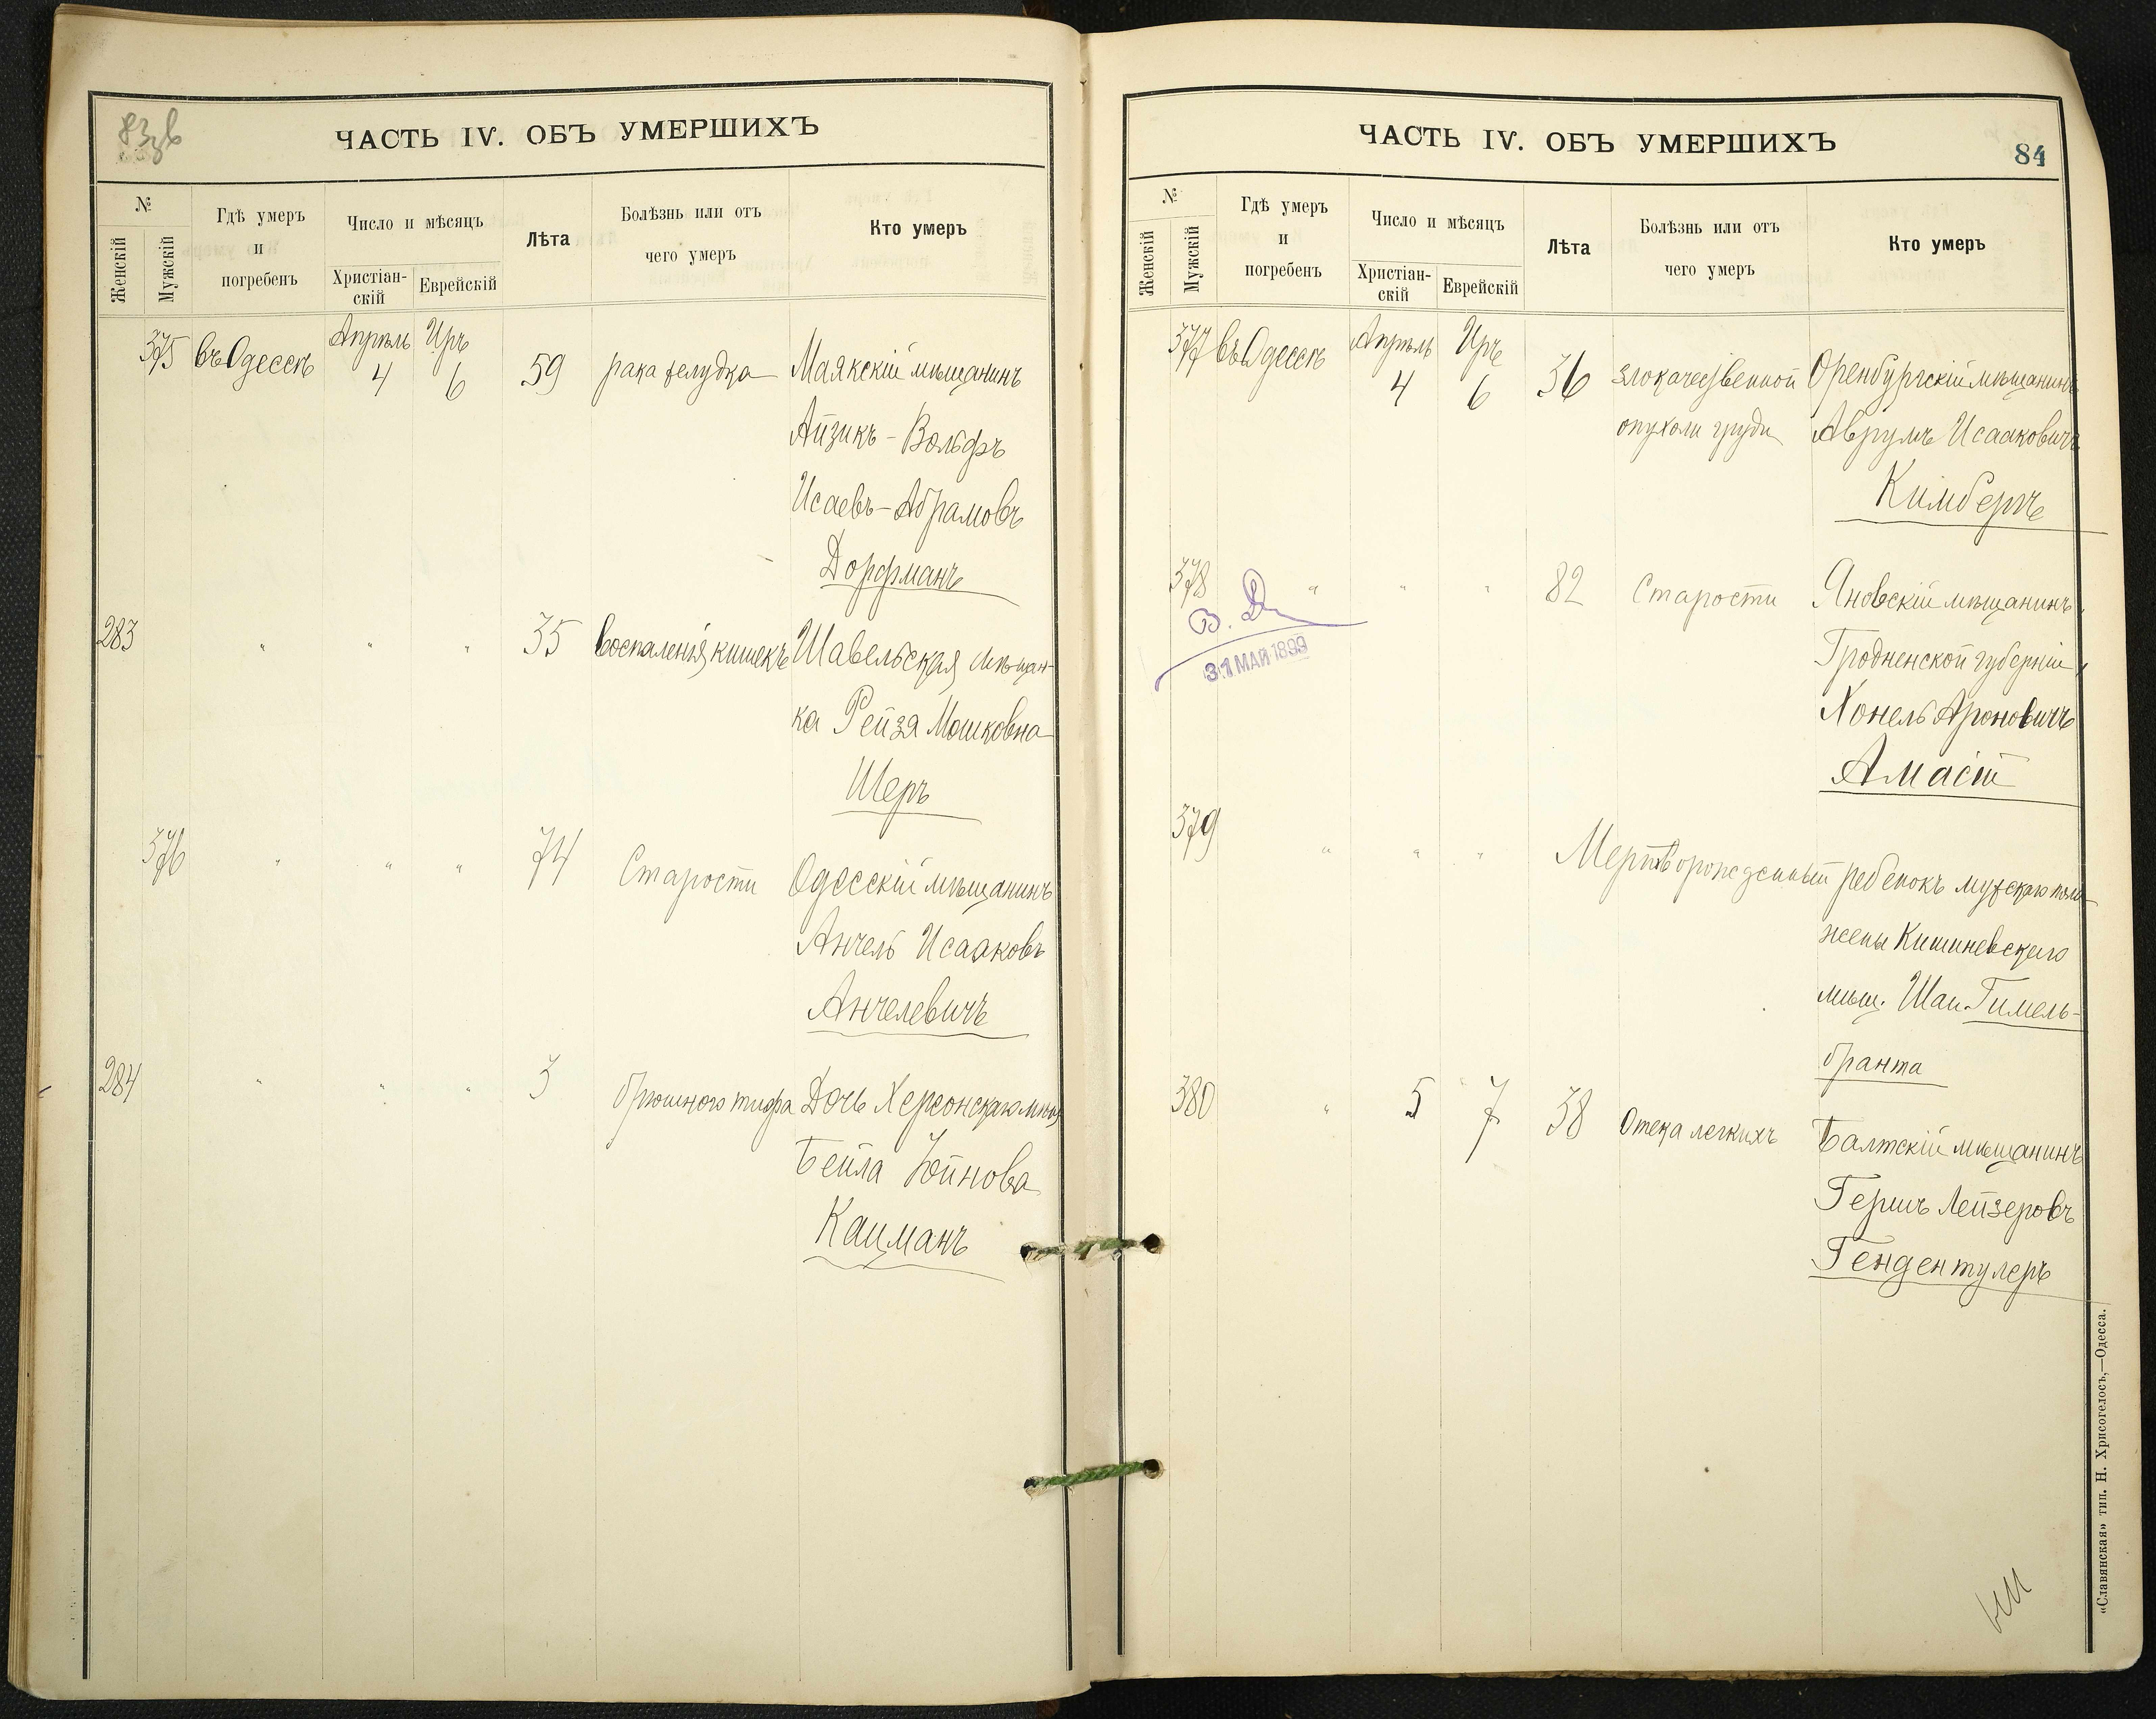 83зв
ЧАСТЬ IV. ОБЪ УМЕРШИХЪ
№
Женскій
Мужскій
Гдѣ умеръ
и
погребенъ
Число и мѣсяцъ
Христіан-
скій
Еврейскій
Лѣта
Болѣзнь или отъ
чего умеръ
Кто умеръ
375 въ Одессѣ Апрѣль 4 Иръ 6 59 рака желудка Маякскій мѣщанинъ
Айзикъ-Вольфъ
Исаевъ-Абрамовъ
Дорфманъ
283 " " " 35 воспаленія кишекъ Шавельская мѣщан-
ка Рейза Мошковна
Шеръ
376 " " " 74 Старости Одесскій мѣщанинъ
Анчель Исааковъ
Анчелевичъ
284 " " " 3 брюшного тифа Дочь Херсонскаго мѣщ
Бейла Юйнова
Кацманъ
ЧАСТЬ IV. ОБЪ УМЕРШИХЪ
84
№
Женскій
Мужскій
Гдѣ умеръ
и
погребенъ
Число и мѣсяцъ
Христіан-
скій
Еврейскій
Лѣта
Болѣзнь или отъ
чего умеръ
Кто умеръ
377 въ Одессѣ Апрѣль 4 Иръ 6 36 злокачественной Оренбургскій мѣщанинъ
опухоли груди Аврумъ Исааковичъ
Кимберъ
378 " " " 82 Старости Яновскій мѣщанинъ,
Гродненской губерніи,
Хонель Ароновичъ
Амасій
31 МАЙ 1899
379 " " " Мертворожденный ребенокъ мужскаго пола
жены Кишиневскаго
мѣщ. Шаи Гимель-
бранта
380 " 5 7 38 Отека легкихъ Балтскій мѣщанинъ
Гершъ Лейзеровъ
Гендентулеръ
«Славянская» тип. Н. Хрисогелосъ,—Одесса.